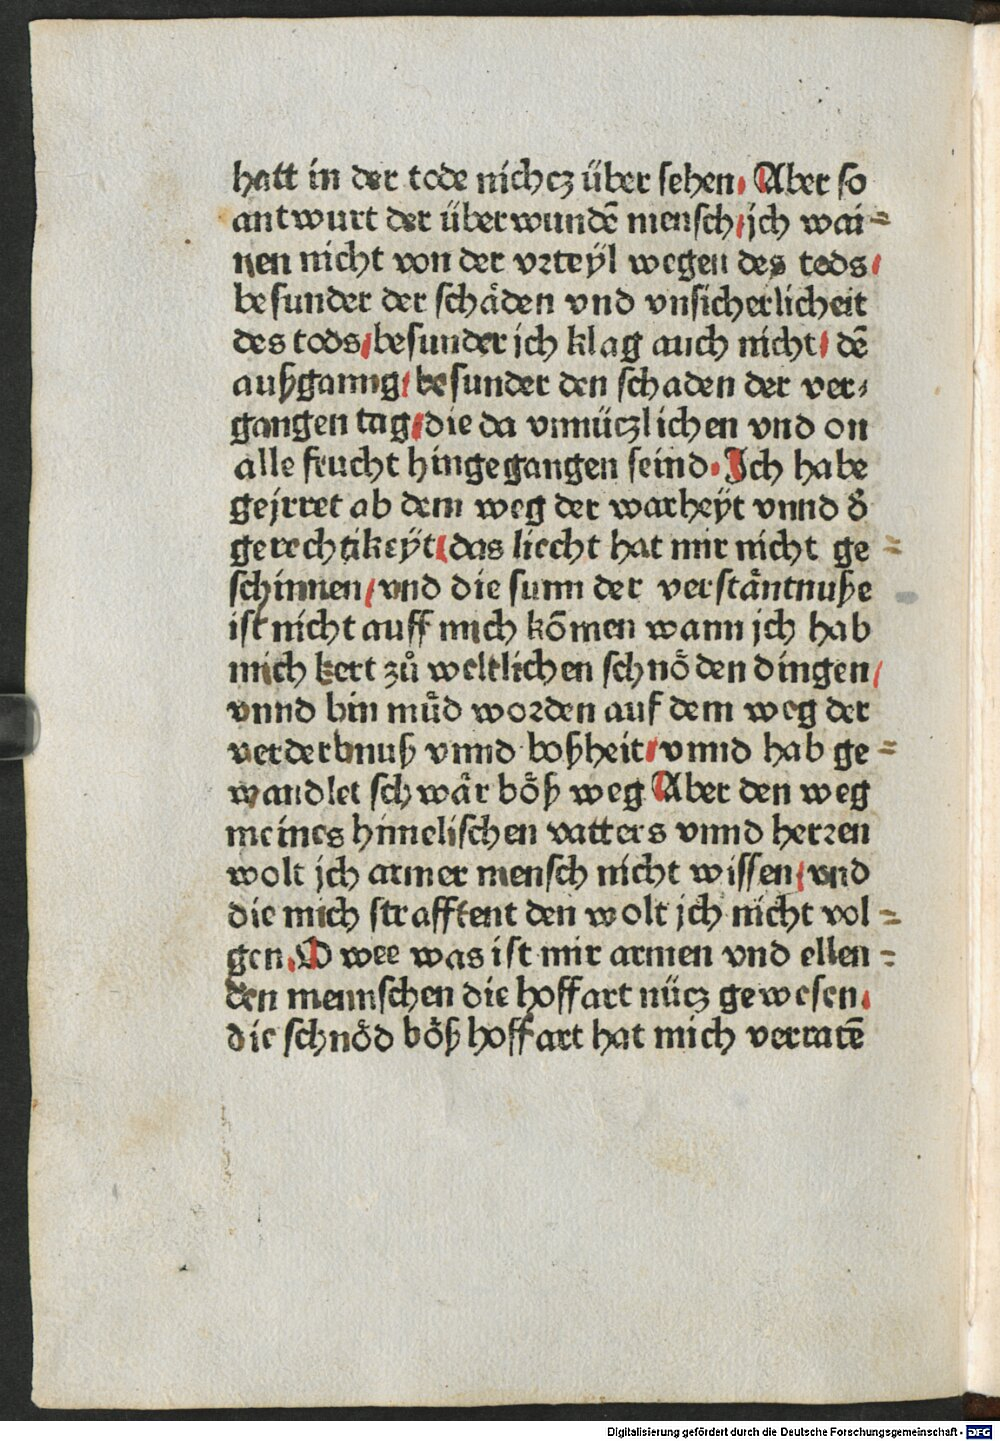 hatt in der tode nichcz über sehen. Aber so
antwurt der überwundē mensch/ jch wai=
nen nicht von der vrteyl wegen des tods/
besunder der schäden vnd vnsicherlicheit
des tods/ besunder jch klag auch nicht/ dē
außganng/ besunder den schaden der ver/
gangen tag/ die da vnnüczlichen vnd on
alle frucht hingegangen seind. Ich habe
gejrret ab dem weg der warheÿt vnnd d̾
gerechtikeÿt/ das liecht hat mir nicht ge=
schinnen/ vnd die sunn der verstäntnuße
ist nicht auff mich kōmen wann jch hab
mich kert zů weltlichen schnöden dingen/
vnnd bin müd worden auf dem weg der
verderbnuß vnnd boßheit/ vnnd hab ge=
wandlet schwär böß weg Aber den weg
meines himelischen vatters vnnd herren
wolt jch armer mensch nicht wissen/ vnd
die mich strafftent den wolt jch nicht vol=
gen. O wee was ist mir armen vnd ellen=
den mennschen die hoffart nücz gewesen.
die schnöd böß hoffart hat mich verratē
Digitalisierung gefördert durch die Deutsche Forschungsgemeinschaft - DFG